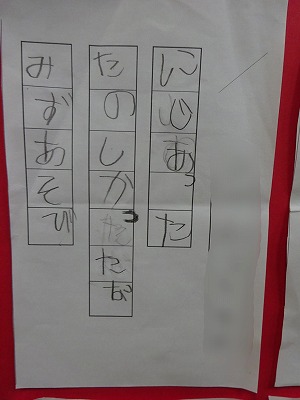 にじあった
たのしかったな
みずあそび